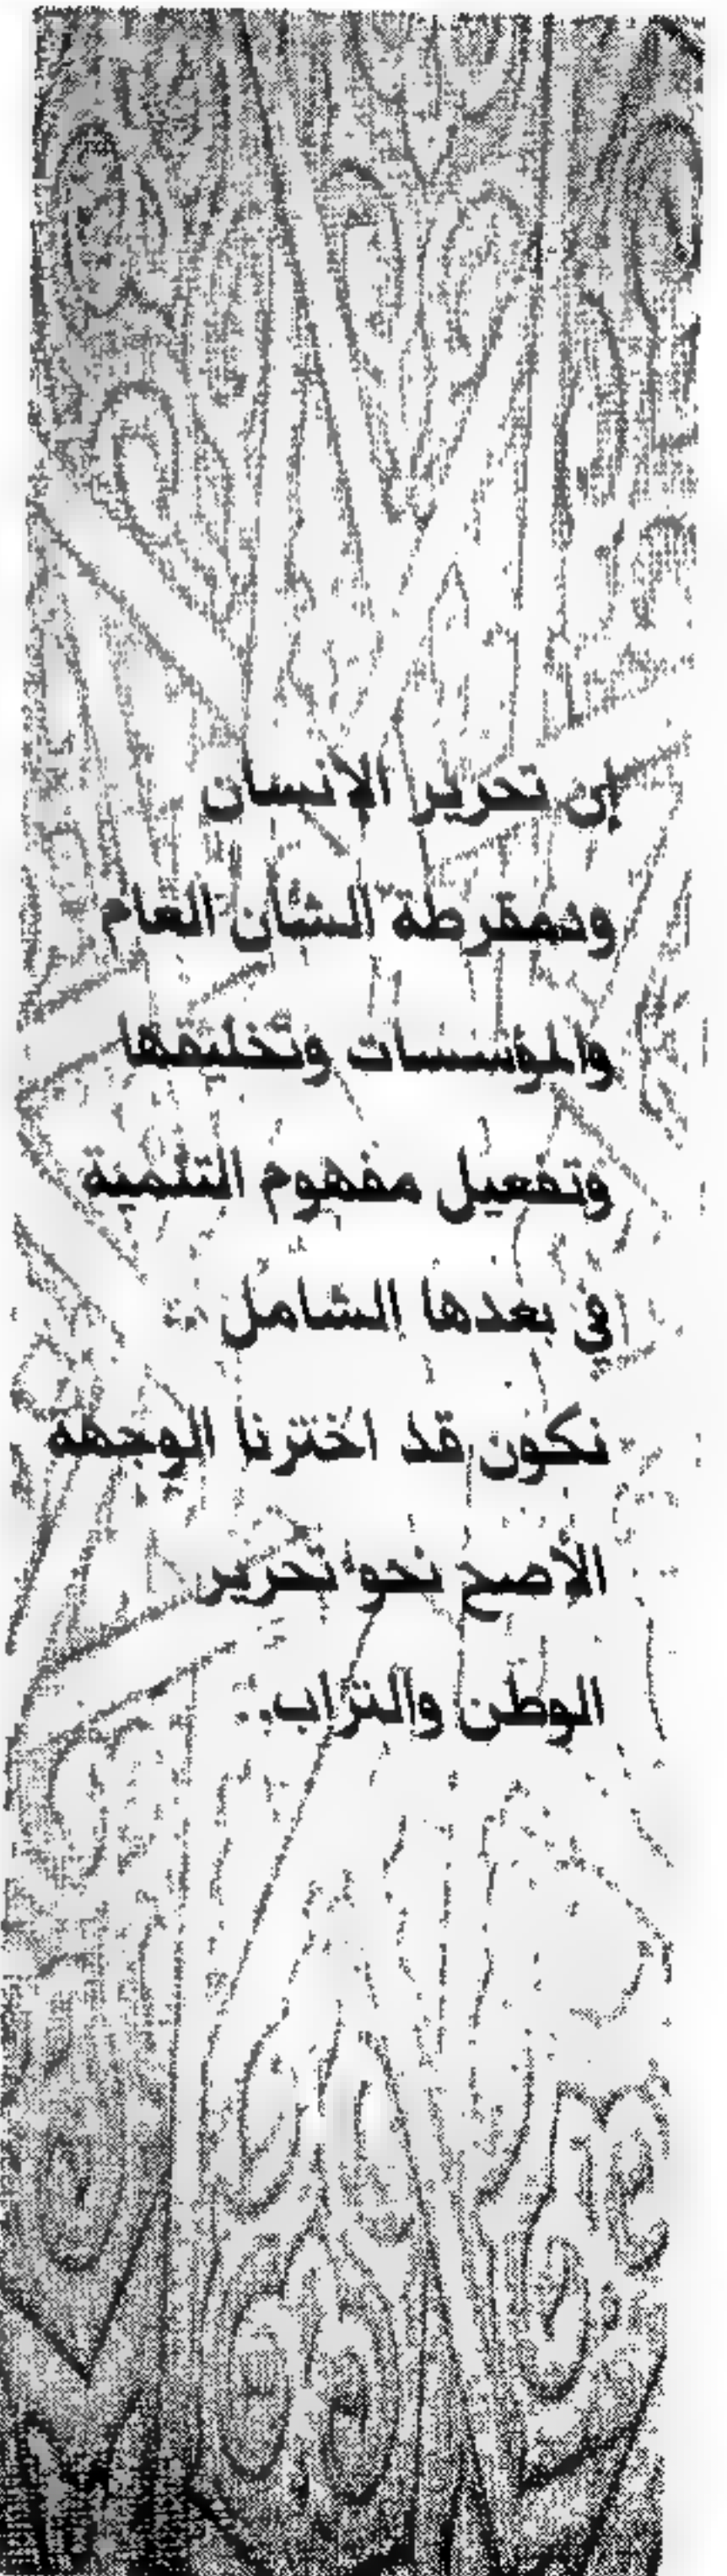 إن تحرير الإنسان
ودمقرطة الشأن العام
والمؤسسات وتخليقها
وتفعيل مفهوم التنمية
في بعدها الشامل
نكون قد اخترنا الوجهة
الأصح نحو تحرير
الوطن والتراب..